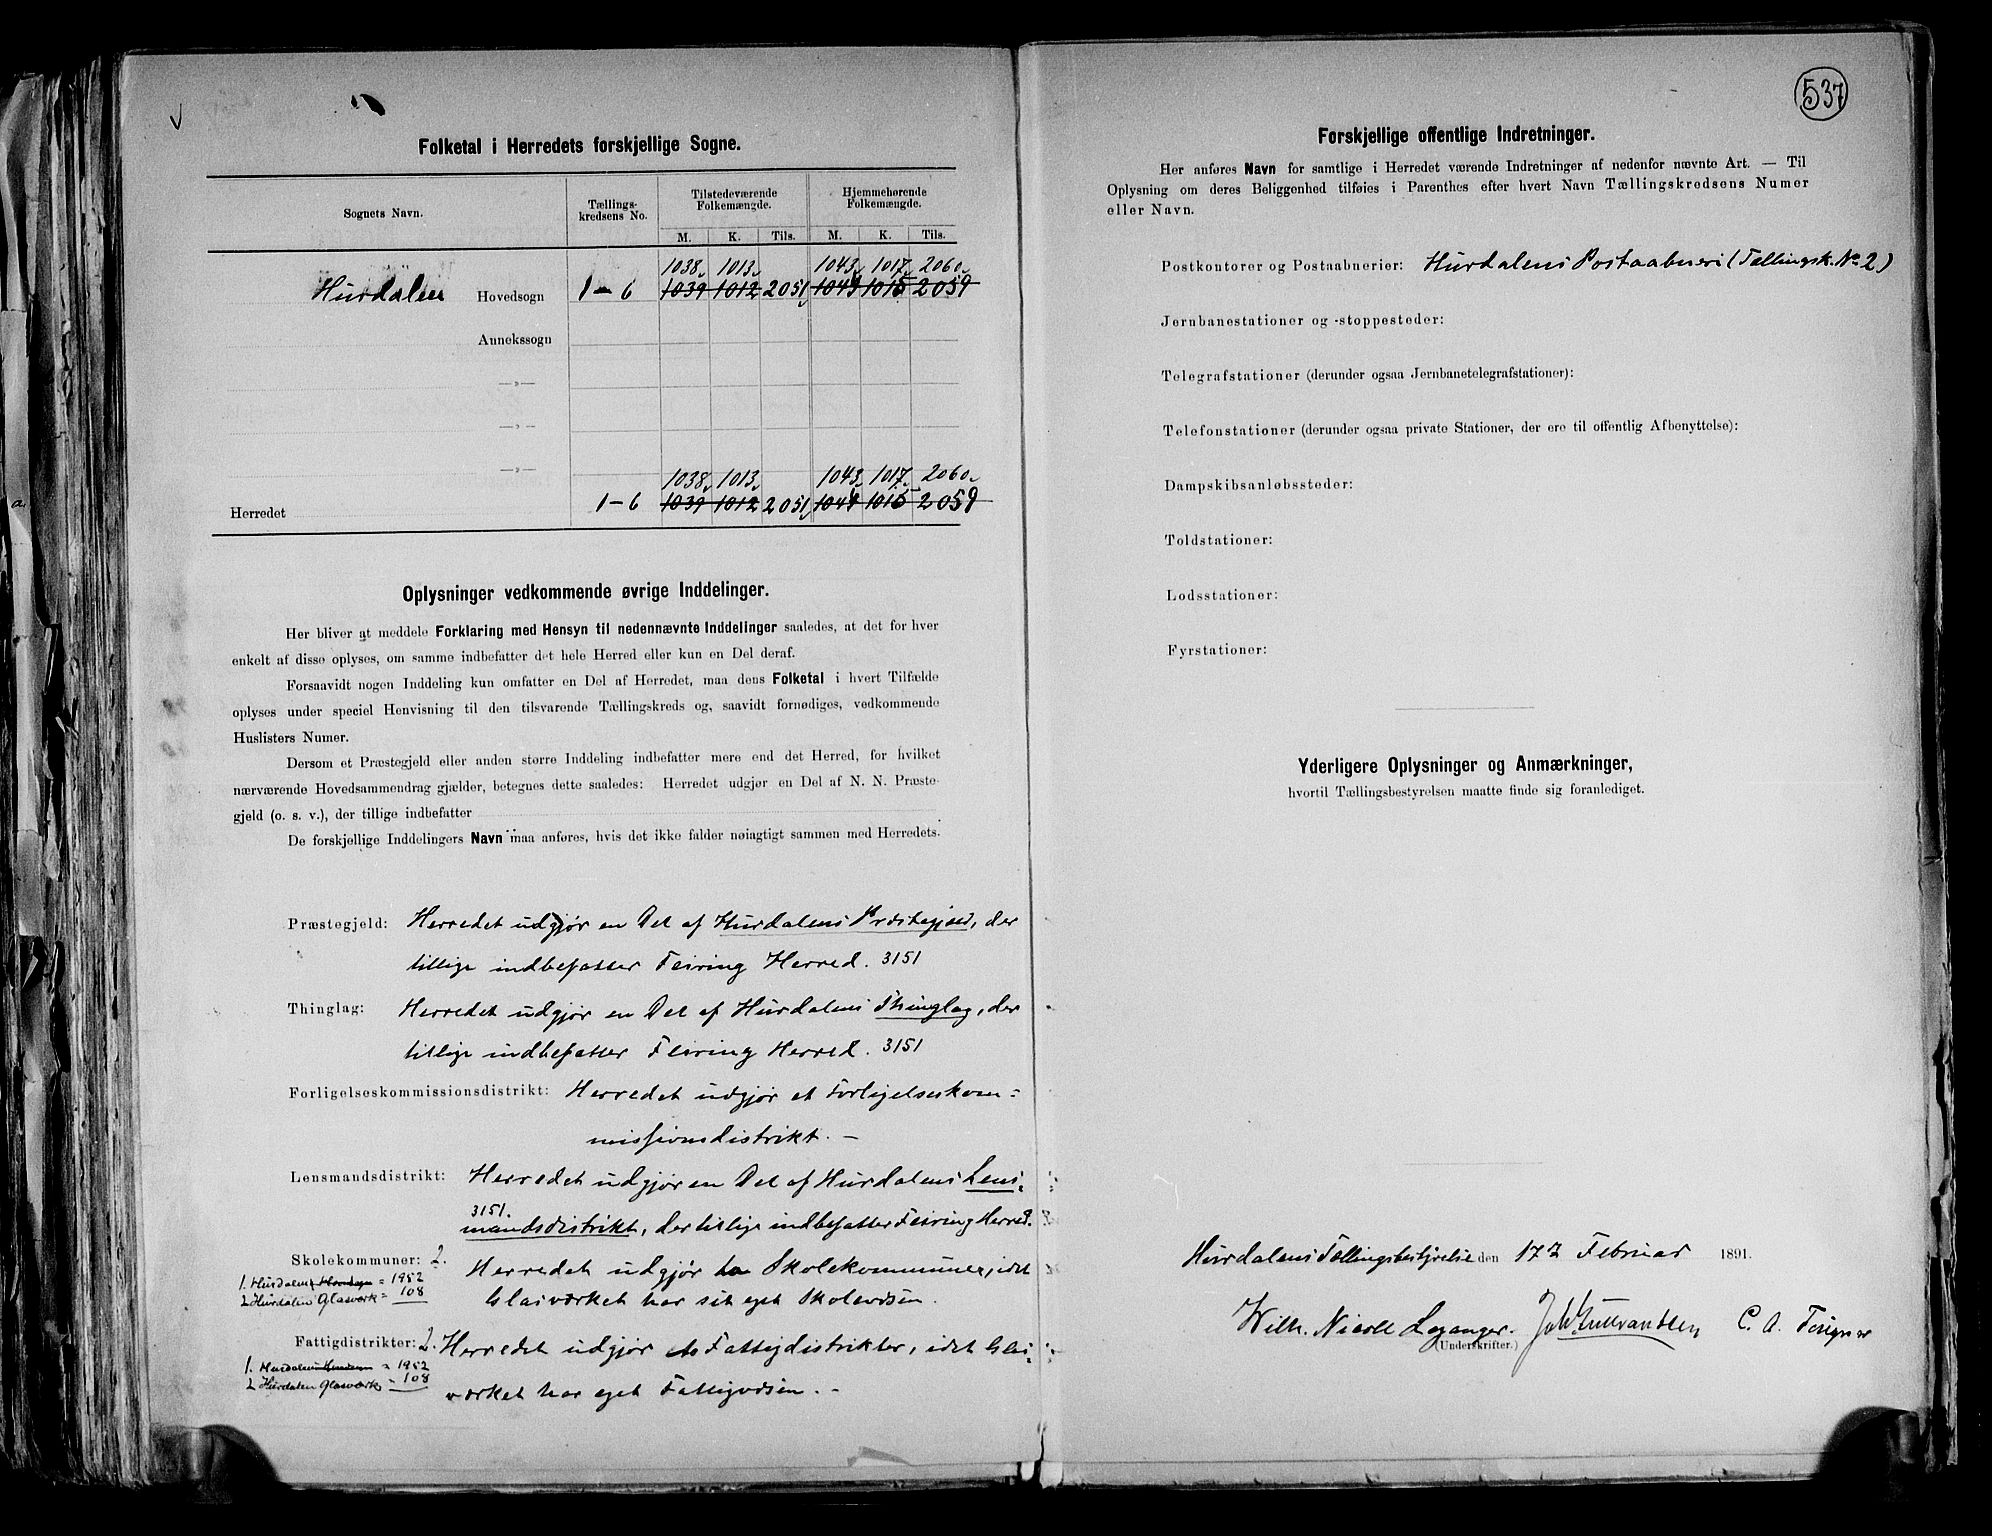 Folketal i Herredets forskjellige Sogne.
Sognets Navn.
Tællings-
kredsens No.
Tilstedeværende
Folkemængde.
Hjemmehørende
Folkemængde.
M. K. Tils. M. K. Tils.
1038 1013 1043 1017 2060
Hurdalen Hovedsogn 1-6 1039 1012 2051 1044 1015 2059
Annekssogn
—„—
—„—
—„—
1038 1013 1043 1017 2060
Herredet 1-6 1039 1012 2051 1044 1015 2059
Oplysninger vedkommende øvrige Inddelinger.
Her bliver at meddele Forklaring med Hensyn til nedennævnte Inddelinger saaledes, at det for hver
enkelt af disse oplyses, om samme indbefatter det hele Herred eller kun en Del deraf.
Forsaavidt nogen Inddeling kun omfatter en Del af Herredet, maa dens Folketal i hvert Tilfælde
oplyses under speciel Henvisning til den tilsvarende Tællingskreds og, saavidt fornødiges, vedkommende
Huslisters Numer.
Dersom et Præstegjeld eller anden større Inddeling indbefatter mere end det Herred, for hvilket
nærværende Hovedsammendrag gjælder, betegnes dette saaledes: Herredet udgjør en Del af N. N. Præste-
gjeld (o. s. v.), der tillige indbefatter
De forskjellige Inddelingers Navn maa anføres, hvis det ikke falder nøiagtigt sammen med Herredets.
Præstegjeld: Herredet udgjør en Del af Hurdalens Præstegjeld, der
tillige indbefatter Feiring Herred. 3151
Thinglag: Herredet udgjør en Del af Hurdalens Thinglag, der
tillige indbefatter Feiring Herred. 3151
Forligelseskommissionsdistrikt: Herredet udgjør et Forligelseskom-
missionsdistrikt. —
Lensmandsdistrikt: Herredet udgjør en Del af Hurdalens Lens-
3151.
mandsdistrikt, der tillige indbefatter Feiring Herred.
Skolekommuner: 2. Herredet udgjør to Skolekommuner, idet
1. Hurdalen = 1952
2 Hurdalen Glasværk = 108
Glasværket har sit eget Skolevæsen.
Fattigdistrikter: 2. Herredet udgjør to Fattigdistrikter, idet Glas-
1. Hurdalen = 1952
2 Hurdalen Glasværk = 108
værket har eget Fattigvæsen. -
537
Forskjellige offentlige Indretninger.
Her anføres Navn for samtlige i Herredet værende Indretninger af nedenfor nævnte Art. — Til
Oplysning om deres Beliggenhed tilføies i Parenthes efter hvert Navn Tællingskredsens Numer
eller Navn.
Postkontorer og Postaabnerier: Hurdalens Postaabneri (Tællingsk. No 2)
Jernbanestationer og -stoppesteder:
Telegrafstationer (derunder ogsaa Jernbanetelegrafstationer):
Telefonstationer (derunder ogsaa private Stationer, der ere til offentlig Afbenyttelse):
Dampskibsanløbssteder:
Toldstationer:
Lodsstationer:
Fyrstationer:
Yderligere Oplysninger og Anmærkninger,
hvortil Tællingsbestyrelsen maatte finde sig foranlediget.
Hurdalens Tællingsbestyrelse den Februar 1891.
Wilh. Nicoll Leganger. C. A.
(Underskrifter.)